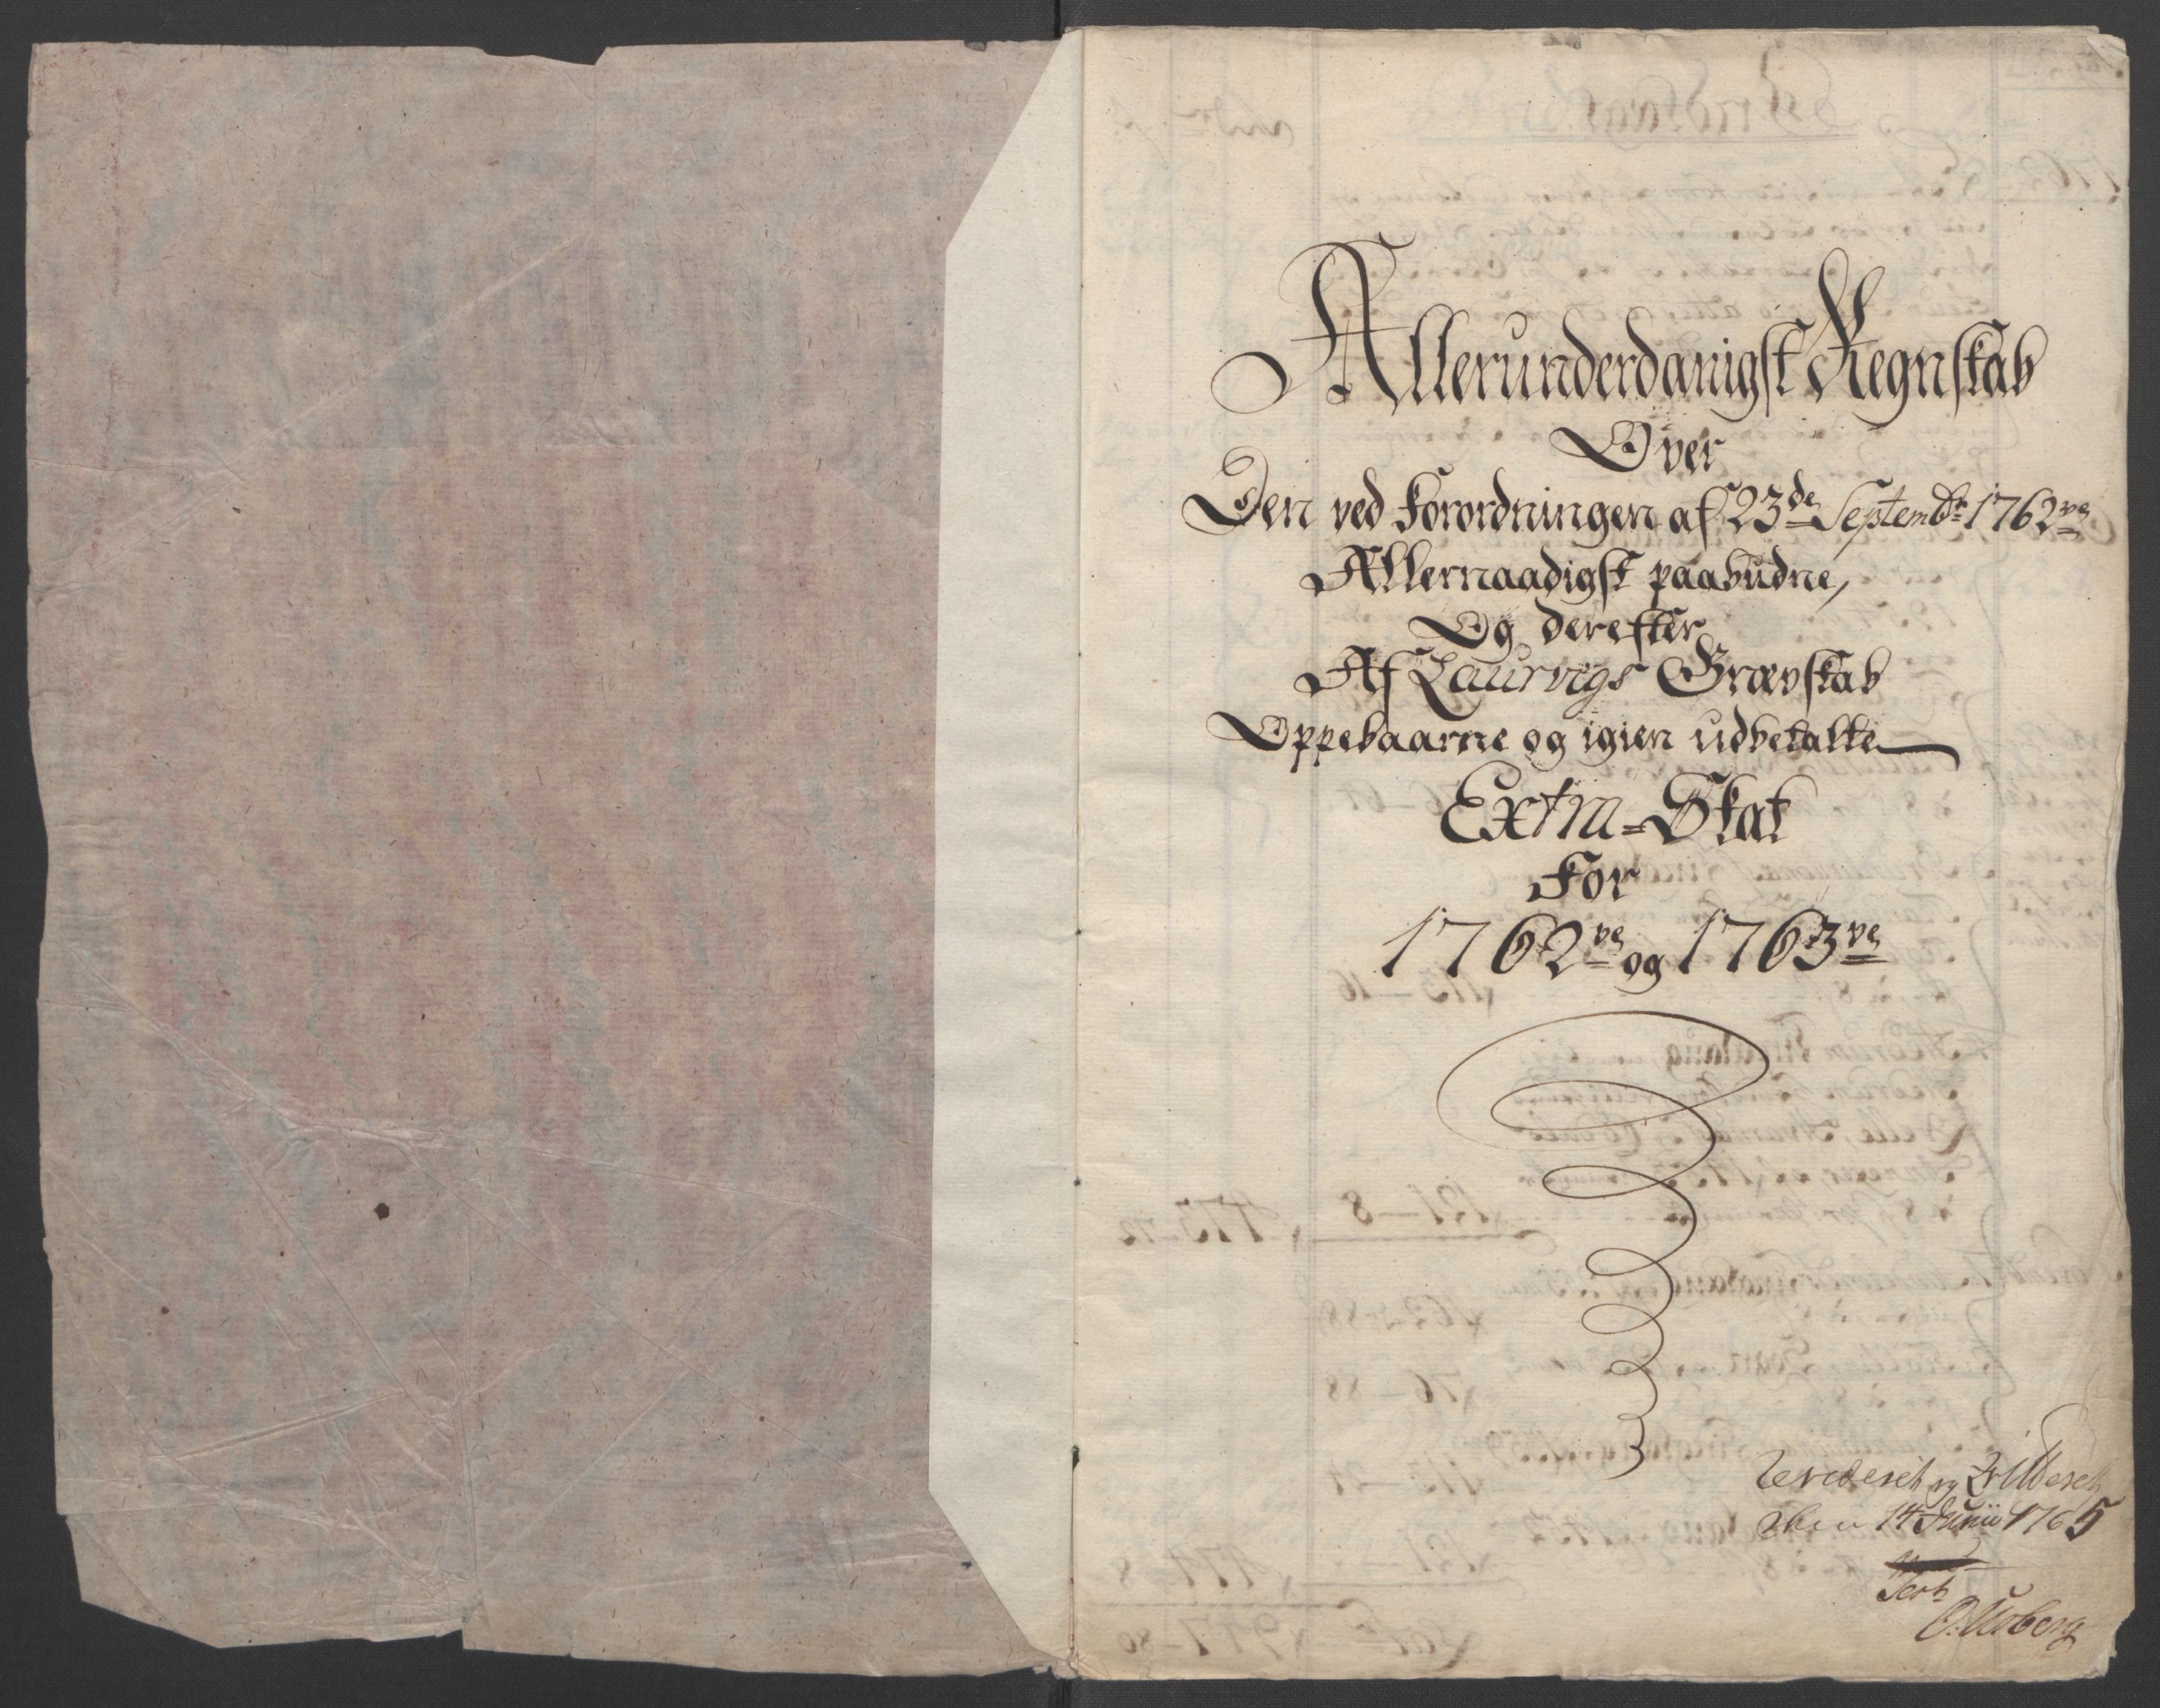 Allerunderdanigst Regnskab
Over
Den ved Forordningen af 23de Septembr 1762ve
Allernaadigst paabudne,
Og derefter
Af Laurvigs Grævskab
Oppebaarne og igien udbetalte
Extra-Skat
For
1762ve og 1763ve
Revideret og
den 14 Junii 1765
O: Urberg